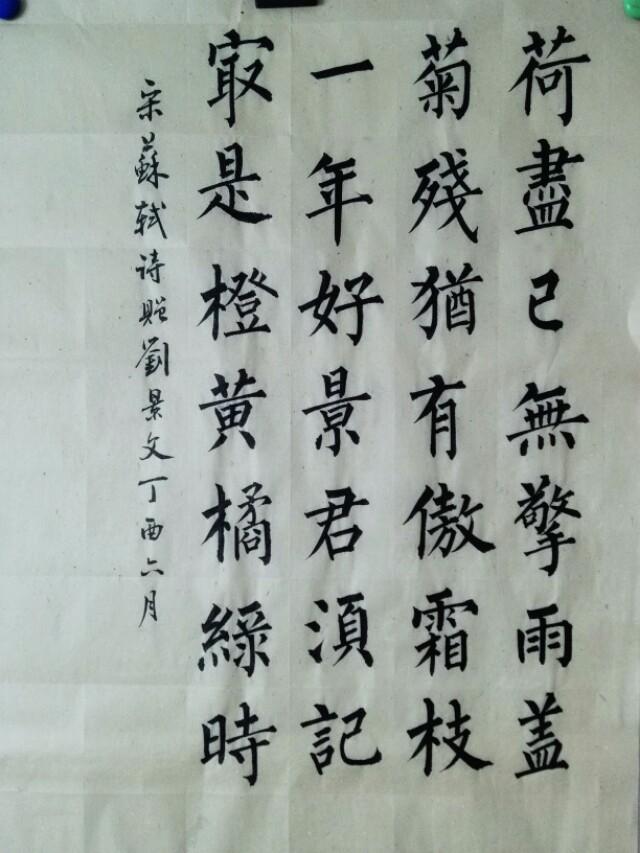 荷盡已無擎雨盖
菊殘猶有傲霜枝
一年好景君湏記
㝡是橙黄橘緑時
宋蘇軾诗贈劉景文丁酉六月